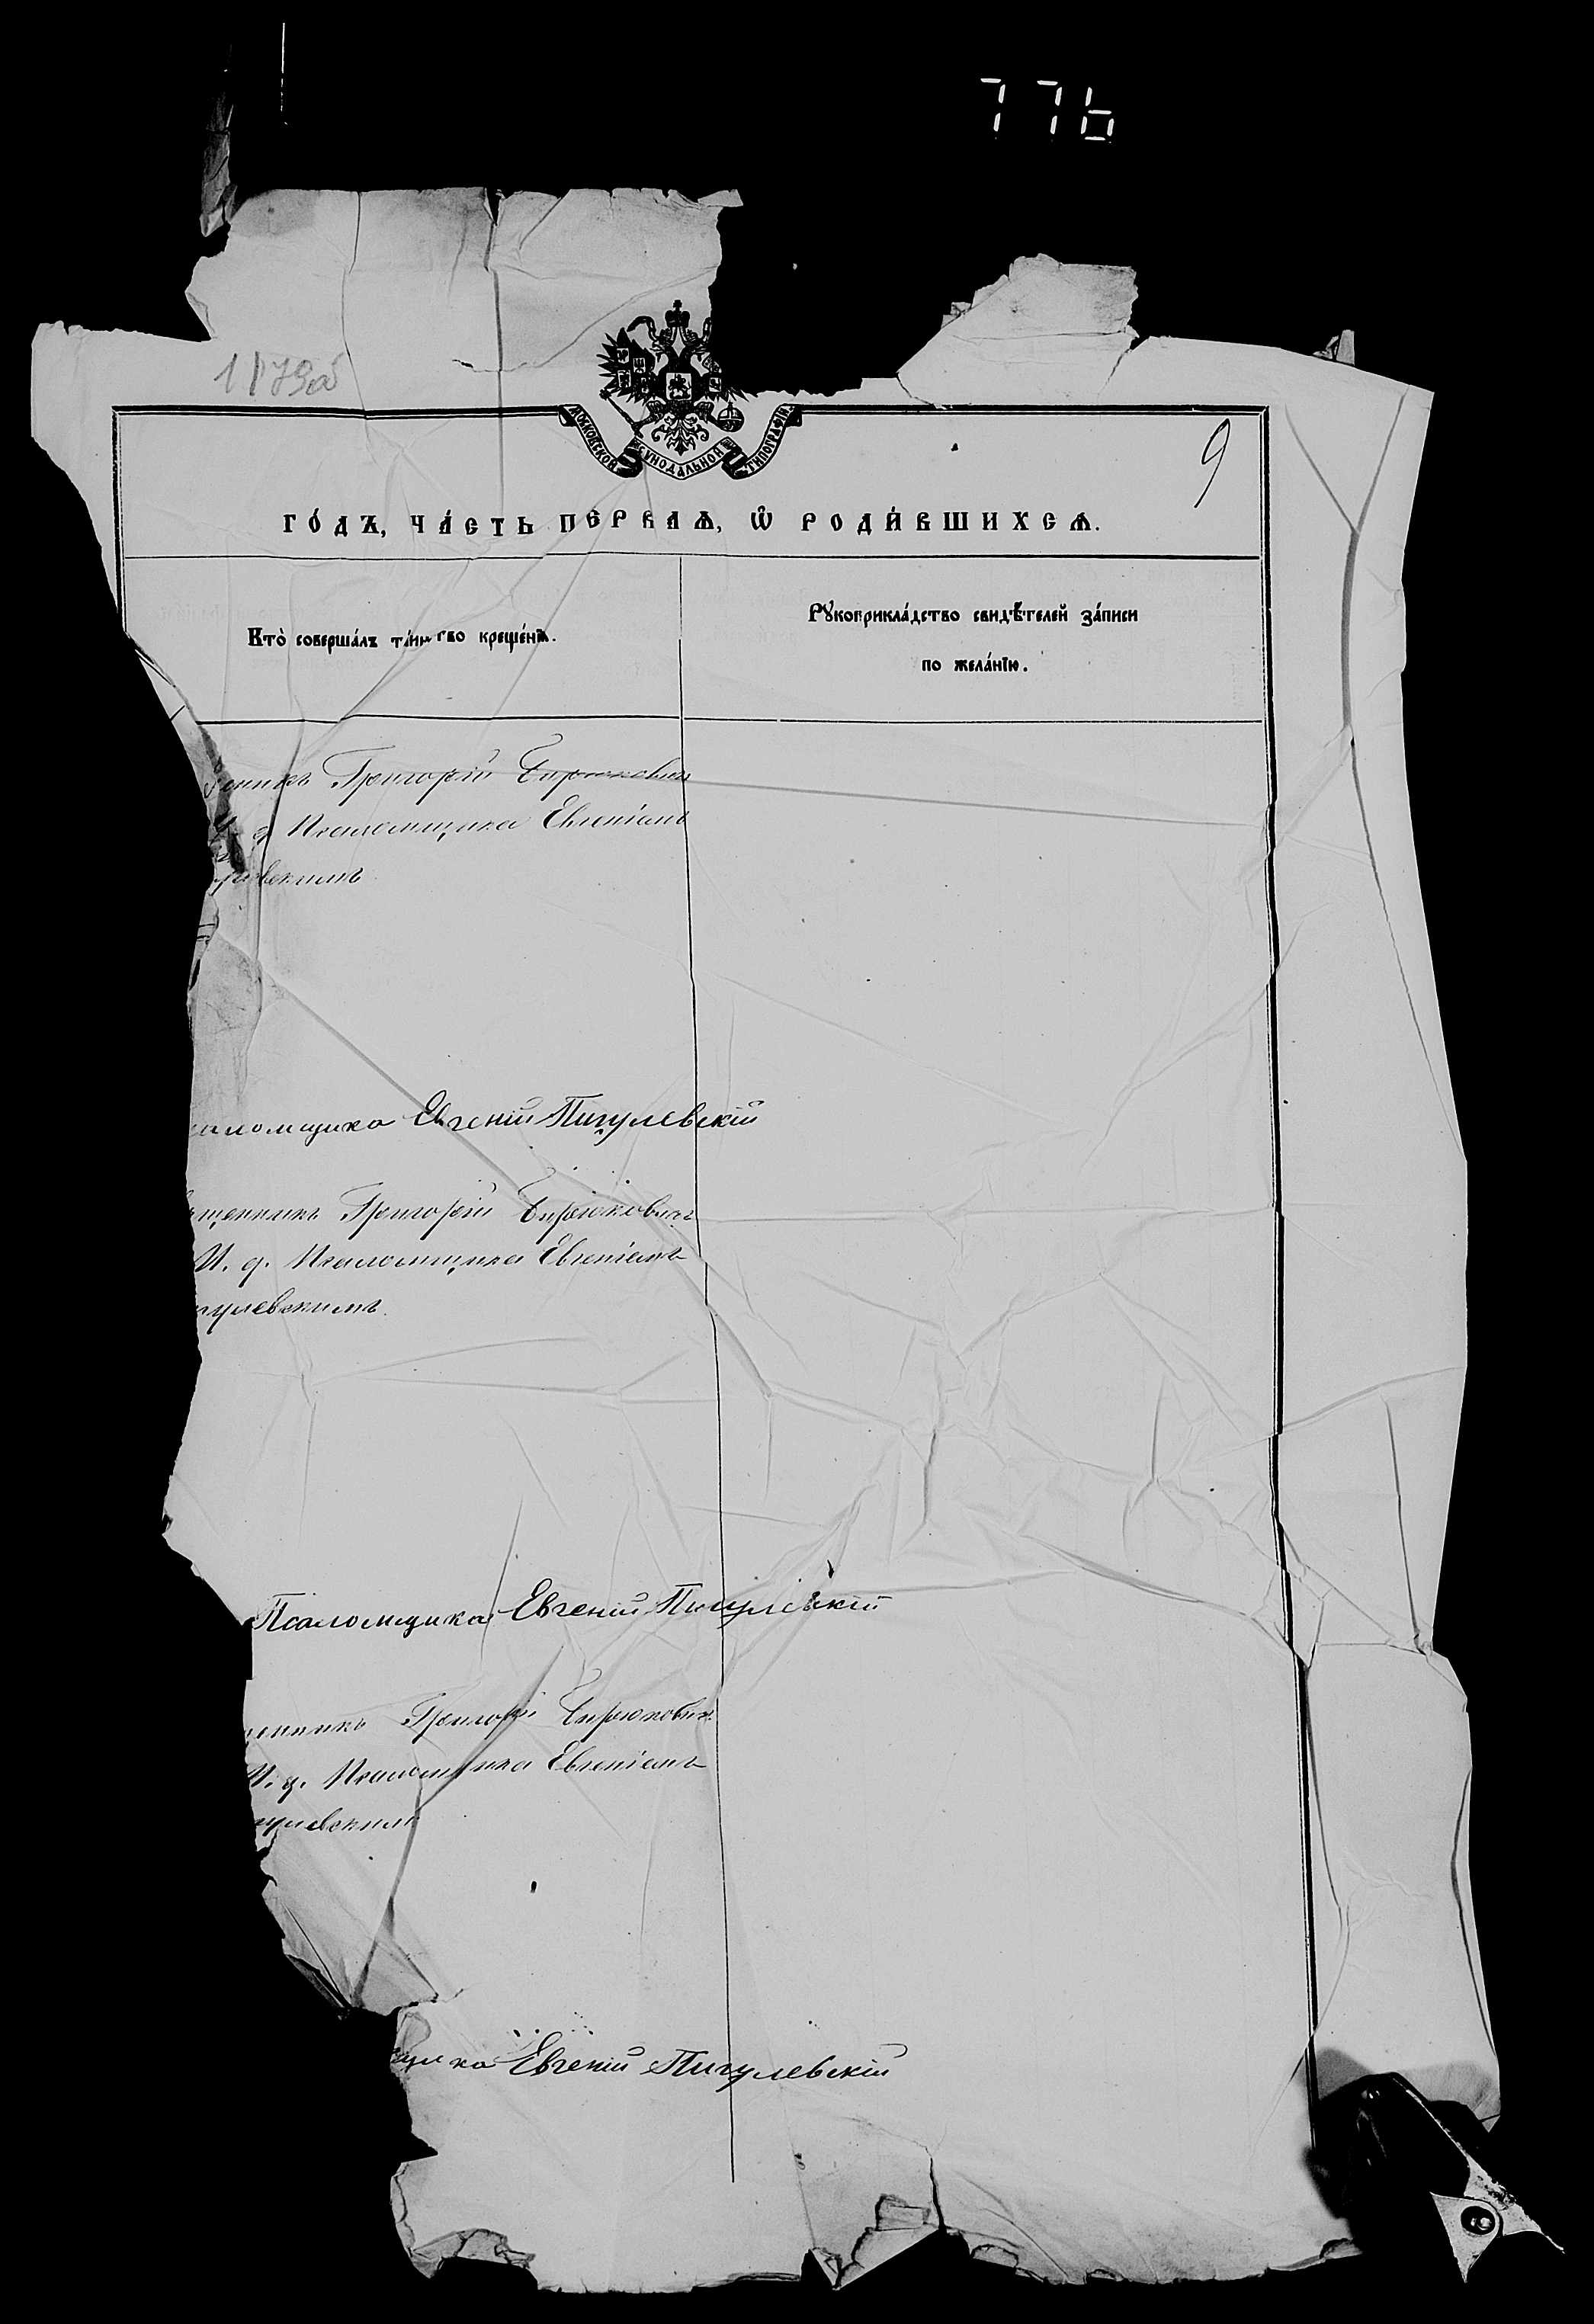 776
9
МОСКОВСКОЙ СѴНОДАЛЬНОЙ ТИПОГРАФІИ
ГО́ДЪ, ЧА́СТЬ ПЕ́РВАѦ, Ѡ҆ РОДИ́ВШИХСѦ.
Кто̀ соверша́лъ та́инство креще́нїѧ.
Рꙋкоприкла́дство свидѣ́телей за́писи
по жела́нїю.
енникъ Григорій Бирюкович
Псаломщика Евгеніемъ
левскимъ
аломщика Евгеній Пигулевскій
щенникъ Григорій Бирюкович
И. д. Псаломщика Евгеніемъ
гулевскимъ.
Псаломщика Евгеній Пигулевскій
енникъ Григорій Бирюкович
И. д. Псаломщика Евгеніемъ
гулевскимъ
щика Евгеній Пигулевскій